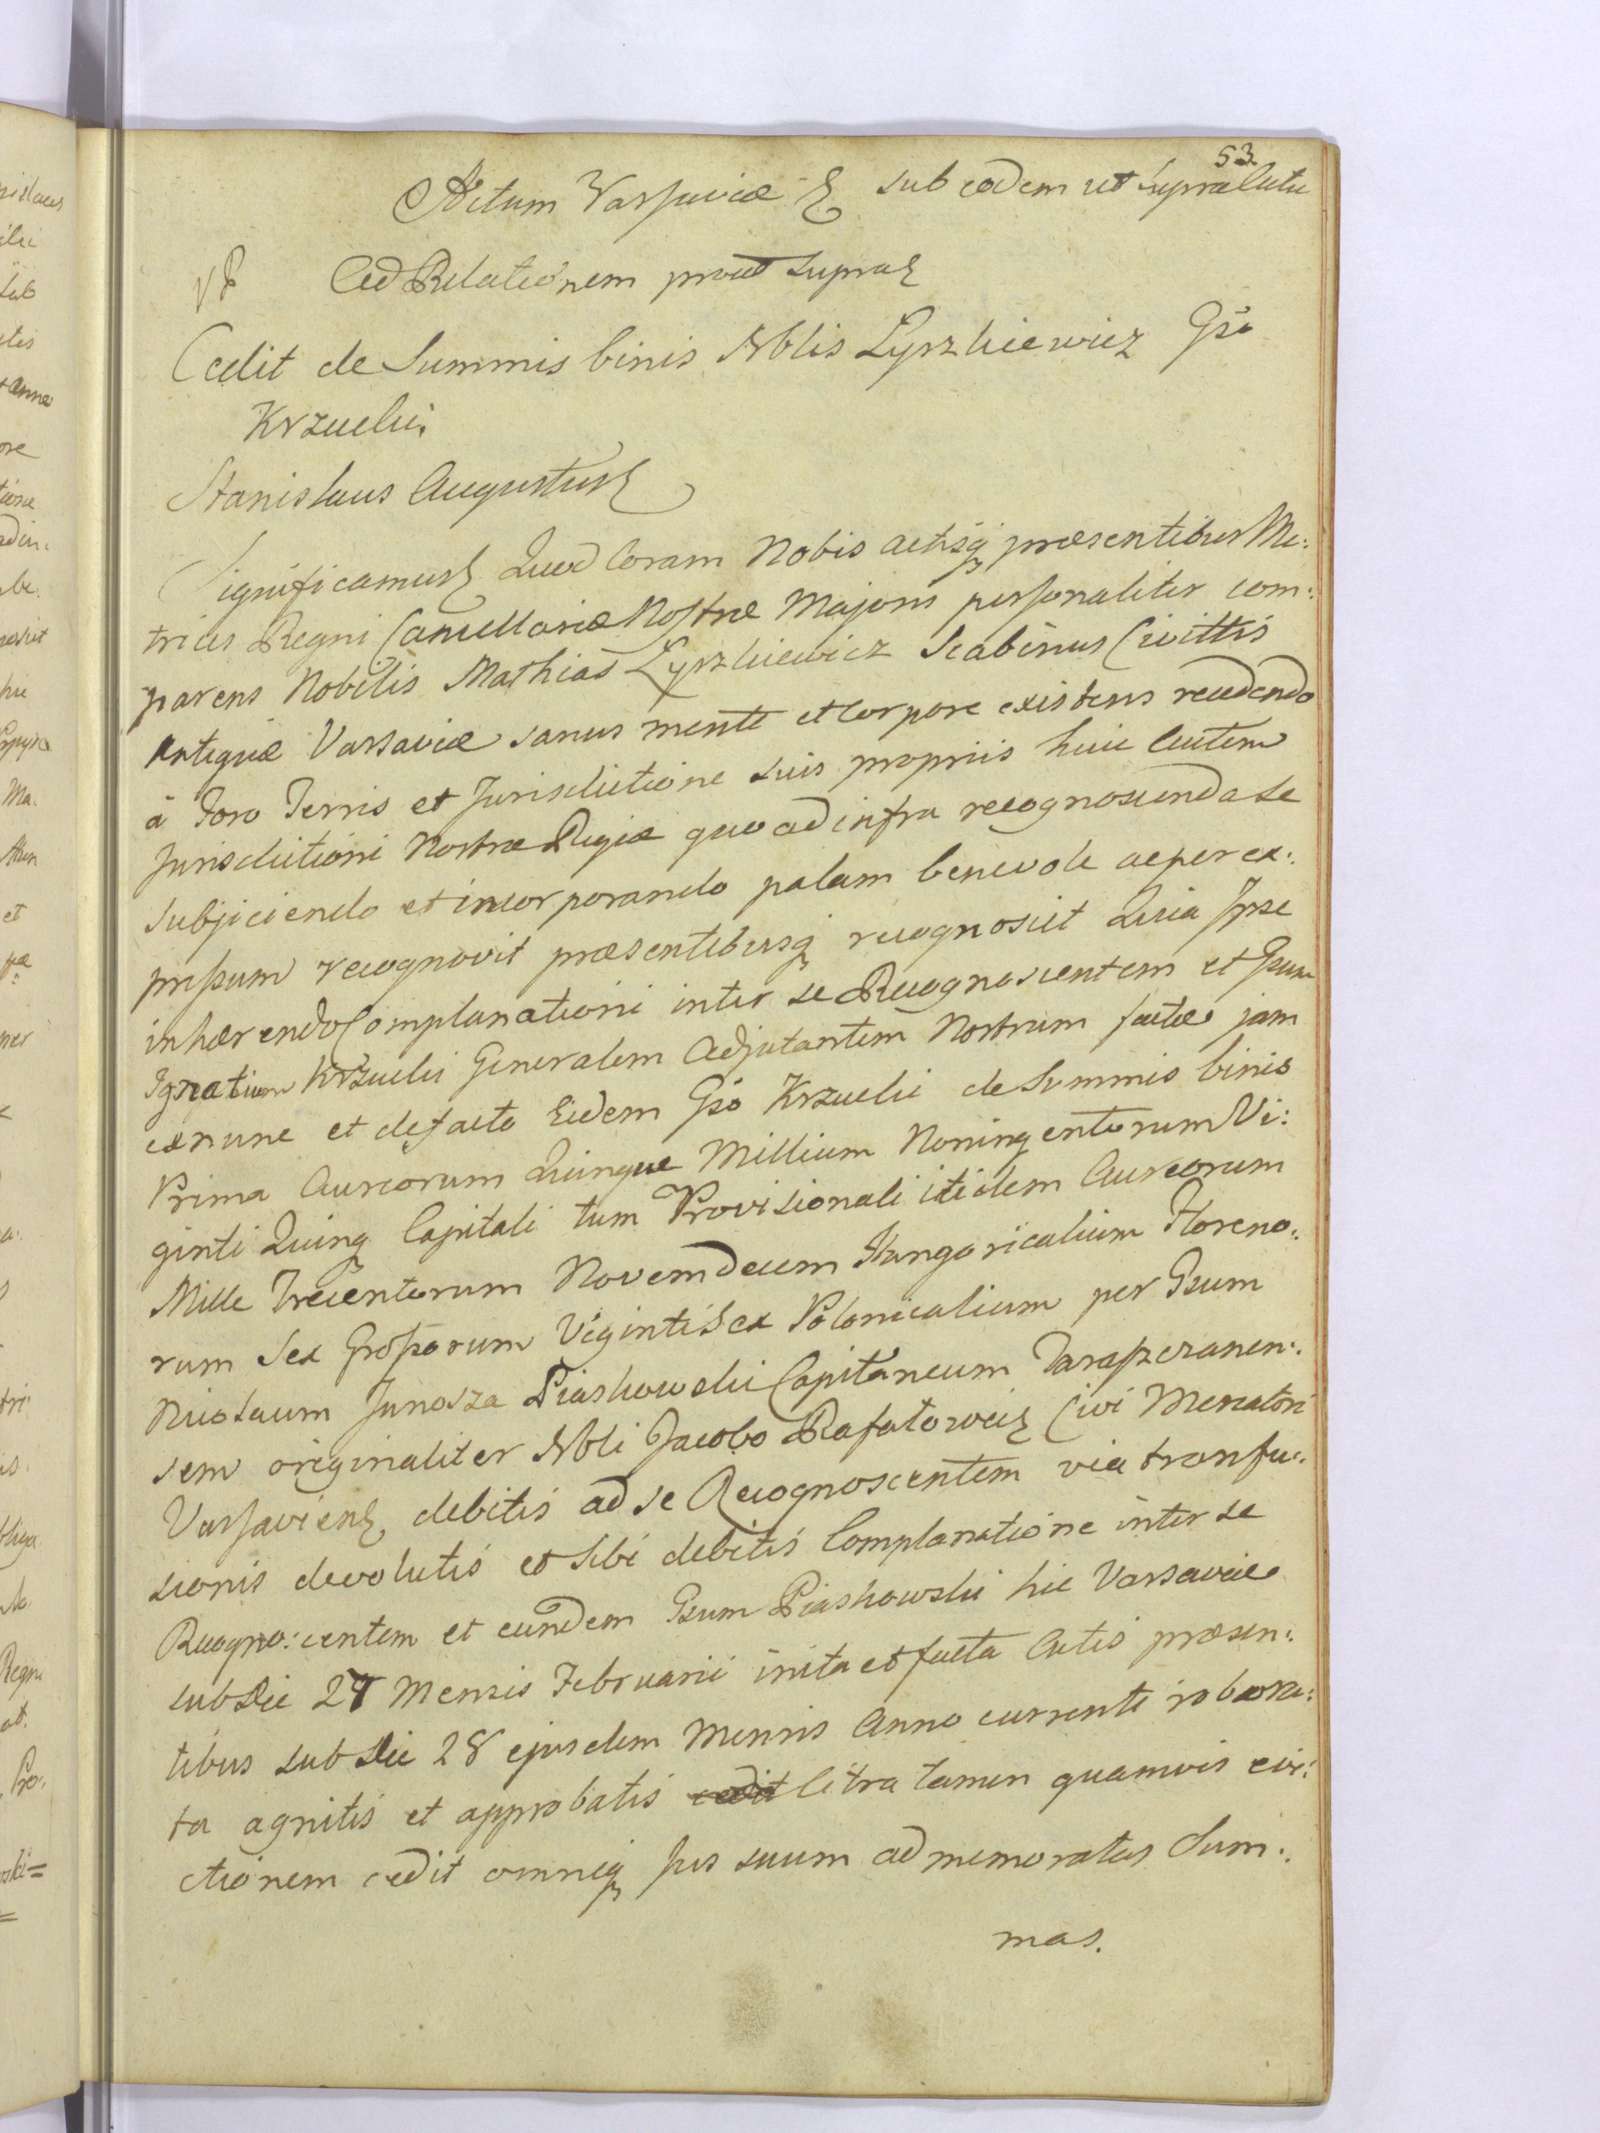 53
Actum Varsaviæ & sub eodem ut supra Actu
Ad Relationem prout supra &
Cedit de Summis binis Nblis Łyszkiewicz Gso
Krzucki.
Stanislaus Augustus &
Significamus & Quod Coram Nobis actisq, præsentibus Me:
trices Regni Cancellariæ Nostræ Majoris personaliter com:
parens Nobilis Mathias Łyszkiewicz Scabinus Civittis
Antiquæ Varsaviæ sanus mente et Corpore existens recedendo
à Foro Terris et Jurisdictione suis propriis huic Autem
Jurisdictioni Nostræ Regiæ quo ad infra recognoscenda se
Subjiciendo et incorporando palam benevole ac per ex:
pressum recognovit præsentibusq, recognoscit Quia Ipse
inhærendo Complanationi inter se Recognoscentem et Gsum
Ignatium Krzucki Generalem Adjutantem Nostrum factæ jam
exnunc et defacto Eidem Gso Krzucki de Summis binis
Prima Aureorum Quinque Millium Noningentorum Vi:
ginti Quinq, Capitali tum Provisionali itidem Aureorum
Mille Trecentorum Novemdecem Hungaricalium Floreno:
rum Sex Grossorum Viginti Sex Polonicalium per Gsum
Nicolaum Junosza Piaskowski Capitaneum Taraszczanen:
sem originaliter Nbli Jacobo Rafałowicz Civi Mercatori
Varsaviens, debitis ad se Recognoscentem via transfu:
sionis devolutis et Sibi debitis Complanatione inter se
Recogno:centem et eundem Gsum Piaskowski hic Varsaviæ
sub Die 27 Mensis Februarii inita et facta Actis præsen:
tibus sub Die 28 ejusdem Mensis Anno currente robora:
ta agnitis et approbatis cedit Citra tamen quamvis evi:
ctionem cedit omneq, Jus suum ad memoratas Sum:
mas.